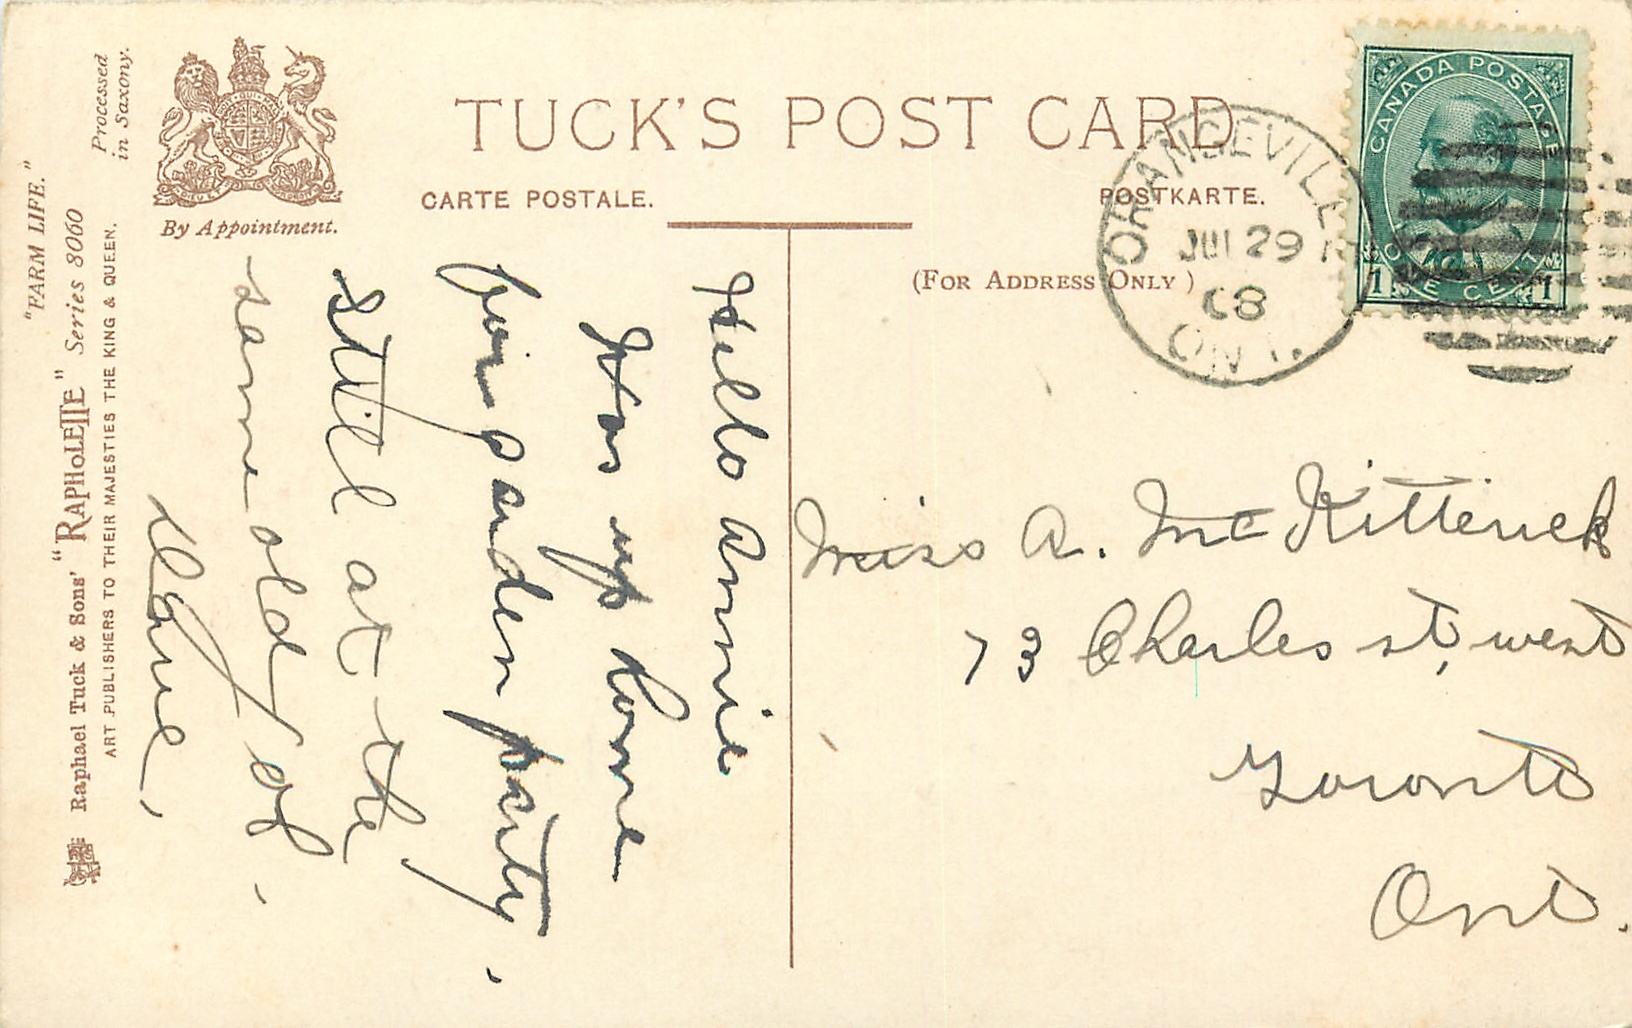 TUCK'S POST CARD
CARTE POSTALE.
POSTKARTE.
(FOR ADDRESS ONLY)
By Appointment.
Processed
in Saxony.
"FARM LIFE."
Raphael Tuck & Sons' "RAPHOLETTE" Series 8060
ART PUBLISHERS TO THEIR MAJESTIES THE KING & QUEEN.
CANADA POSTAGE
1 ONE CENT 1
ORANGEVILLE
JUL 29
08
ONT.
Hello Annie
Was up home
for garden party,
still at the
same old job.
Miss A. McKitterick
73 Charles st, west
Toronto
Ont.